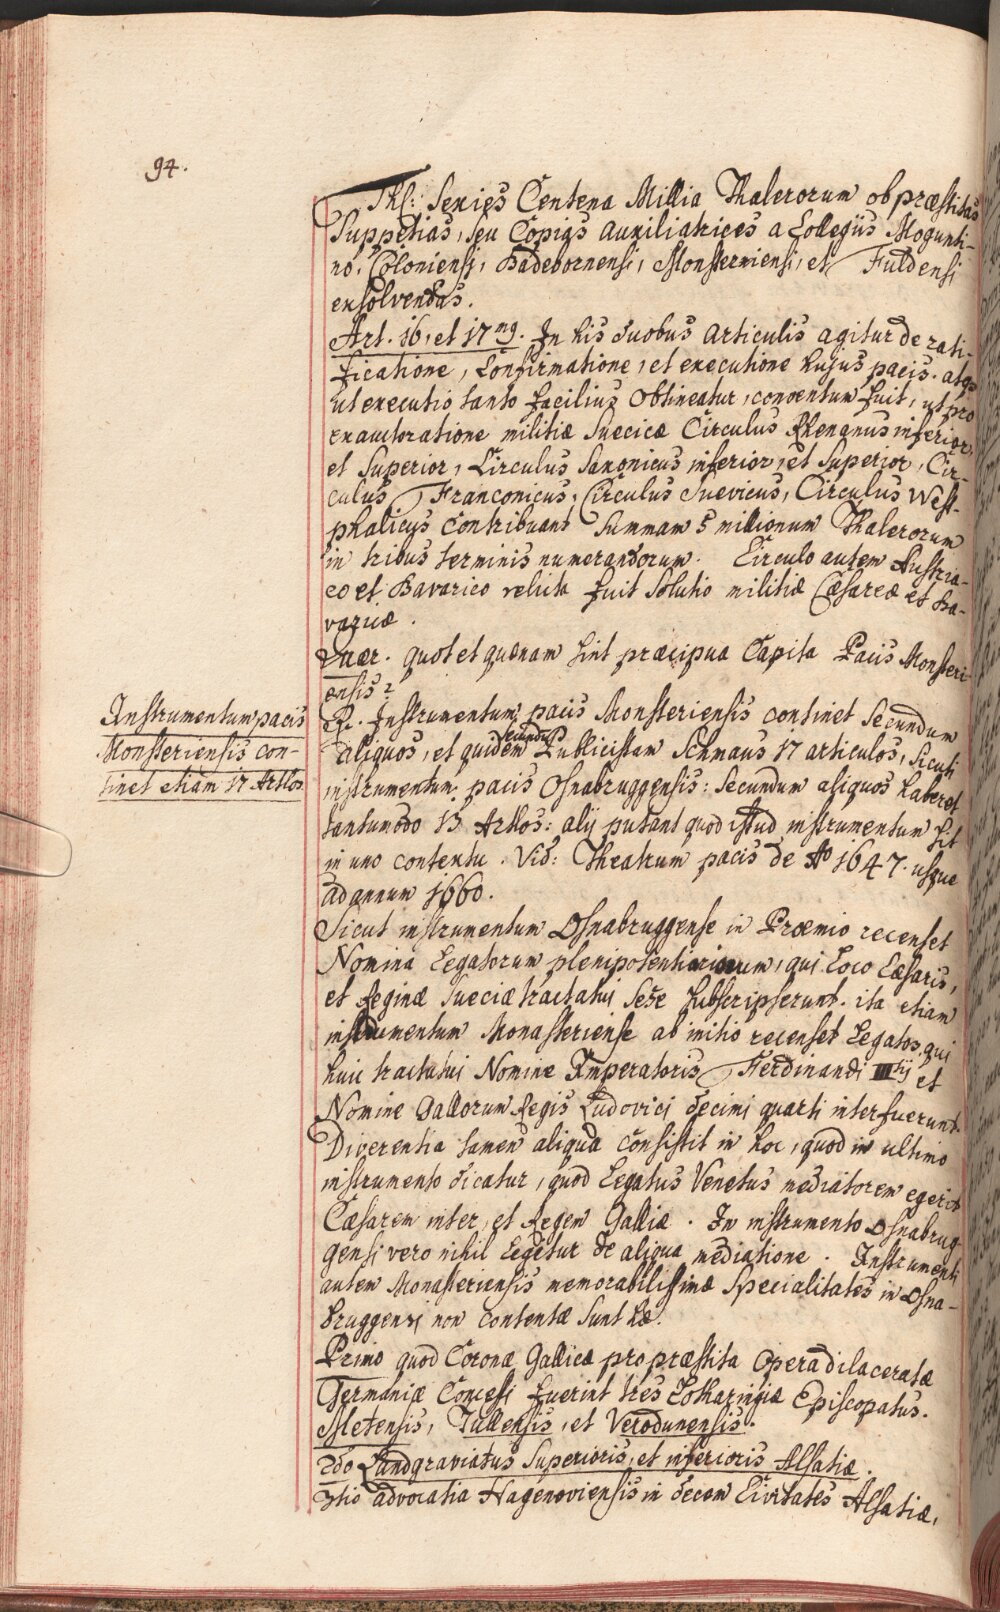 94.
Thl: Sexies Centena Millia Thalerorum ob præstitas
Suppetias, seu Copias auxiliatrices a Collegiis Mogunti-
no, Coloniensi, Padebornensi, Monsteriensi, et Fuldensi
exsolvendas.
Art. 16. et 17mg. In his duobus articulis agitur de rati-
ficatione, Confirmatione, et executione hujus pacis. atqe
ut executio tanto facilius obtineatur, conventum fuit, ut pro
exauctoratione militiæ Suecicæ Circulus Rhenanus inferior,
et Superior, Circulus Saxonicus inferior, et Superior, Cir-
culus Franconicus, Circulus Suevicus, Circulus West-
phalicus Contribuant Summam 5 millionum Thalerorum
in tribus terminis numerandorum. Circulo autem Austria-
co et Bavarico relicta fuit Solutio militiæ Cæsareæ et Ba-
varicæ.
Quær. quot et quænam sint præcipua Capita Pacis Monsteri-
ensis?
Instrumentum pacis
Monsteriensis con-
tinet etiam 17 Artlos
R. Instrumentum pacis Monsteriensis continet Secundum
aliquos, et quidem secundum Publicistam Schmaus 17 articulos, sicuti
instrumentum pacis Osnabruggensis: Secundum aliquos haberet
tantumodo 13 Artlos: alij putant quod istud instrumentum sit
in uno contextu. Vid: Theatrum pacis de Ao 1647. usque
ad annum 1660.
Sicut instrumentum Osnabruggense in Proemio recenset
Nomina Legatorum plenipotentiariorum, qui Loco Cæsaris,
et Reginæ Sueciæ tractatui sese subscripserunt. ita etiam
instrumentum Monasteriense ab initio recenset Legatos, qui
huic tractatui Nomine Imperatoris Ferdinandi IIItij et
Nomine Gallorum Regis Ludovici decimi quarti interfuerunt.
Diverentia tamen aliqua consistit in hoc, quod in ultimo
instrumento dicatur, quod Legatus Venetus mediatorem egerit
Cæsarem inter, et Regem Galliæ. In instrumento Osnabrug-
gensi vero nihil Legitur de aliqua mediatione. Instrumenti
autem Monasteriensis memorabilissimæ Specialitates in Osna-
bruggensi non contentæ sunt hæ.
Primo quod Coronæ Gallicæ pro præstita opera dilaceratæ
Germaniæ Concessi fuerint tres Lotharingiæ Episcopatus.
Metensis, Tullensis, et Verodunensis.
2do Landgraviatus Superioris, et inferioris Alsatiæ.
3tio advocatia Hagenoviensis in decem Civitates Alsatiæ,